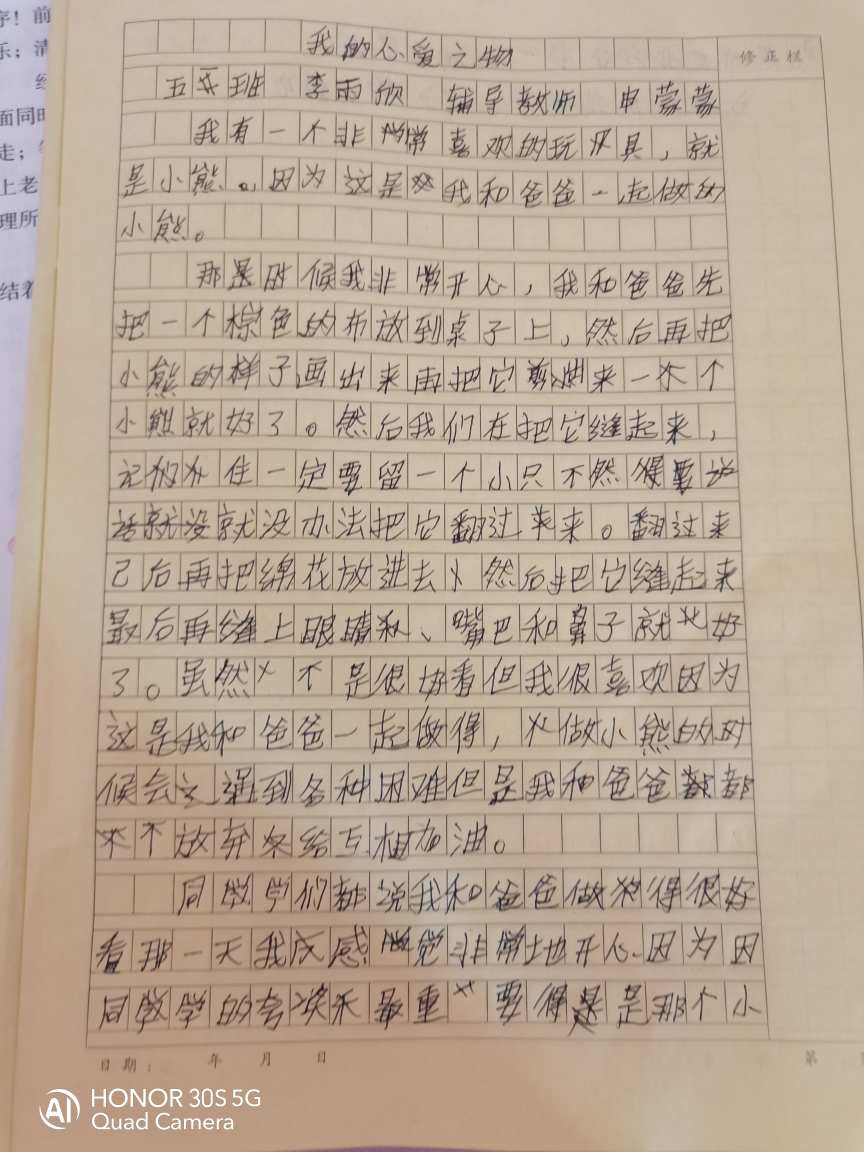 我的心爱之物
修正栏
五 班 李雨欣 辅导教师 申蒙蒙
我有一个非常喜欢的玩具，就
是小熊。因为这是我和爸爸一起做的
小熊。
那是时候我非常开心，我和爸爸先
把一个棕色的布放到桌子上，然后再把
小熊的样子画出来再把它剪出来一个
小熊就好了。然后我们在把它缝起来，
记住一定要留一个小只不然 要说
话就没就没办法把它翻过来。翻过来
己后再把绵花放进去然后把它缝起来
最后再缝上眼睛、嘴巴和鼻子就好
了。虽然不是很好看但我很喜欢因为
这是我和爸爸一起做得，做小熊的时
候会遇到各种困难但是我和爸爸都
不放弃给互相加油。
同学们都说我和爸爸做得很好
看那一天我感觉非常地开心因为因
同学的夸奖最重要得是是那个小
日期： 年 月 日
第
序！前
乐；清
面同时
走；
上老
理所
结着
HONOR 30S 5G
Quad Camera
AI